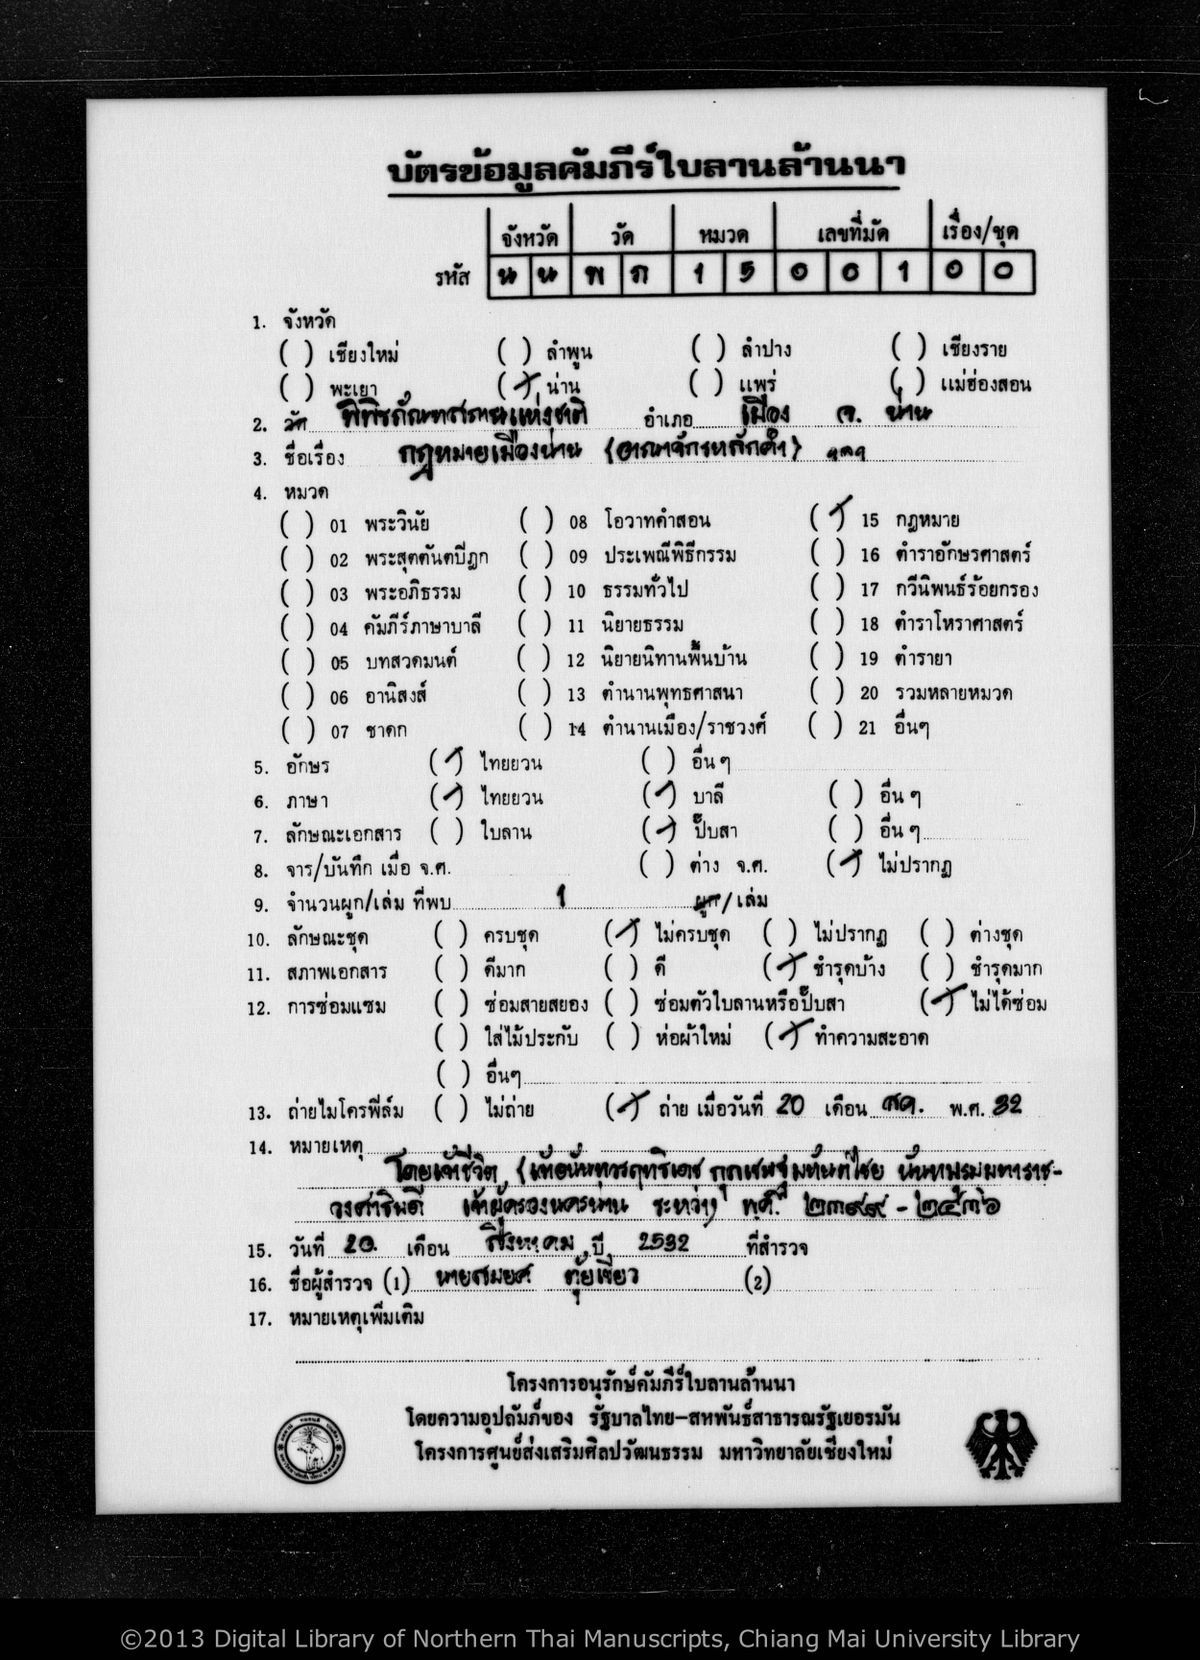 บัตรข้อมูลคัมภีร์ใบลานล้านนา
จังหวัด วัด หมวด เลขที่มัด เรื่อง/ชุด
รหัส น น พ ภ 1 5 0 0 1 0 0
1. จังหวัด
( ) เชียงใหม่ ( ) ลำพูน ( ) ลำปาง ( ) เชียงราย
( ) พะเยา (/) น่าน ( ) แพร่ ( ) แม่ฮ่องสอน
2. วัด พิพิธภัณฑสถานแห่งชาติ อำเภอ เมือง จ. น่าน
3. ชื่อเรื่อง กฎหมายเมืองน่าน (อาณาจักรหลักคำ)
4. หมวด
( ) 01 พระวินัย ( ) 08 โอวาทคำสอน (/) 15 กฎหมาย
( ) 02 พระสุตตันตปีฎก ( ) 09 ประเพณีพิธีกรรม ( ) 16 ตำราอักษรศาสตร์
( ) 03 พระอภิธรรม ( ) 10 ธรรมทั่วไป ( ) 17 กวีนิพนธ์ร้อยกรอง
( ) 04 คัมภีร์ภาษาบาลี ( ) 11 นิยายธรรม ( ) 18 ตำราโหราศาสตร์
( ) 05 บทสวดมนต์ ( ) 12 นิยายนิทานพื้นบ้าน ( ) 19 ตำรายา
( ) 06 อานิสงส์ ( ) 13 ตำนานพุทธศาสนา ( ) 20 รวมหลายหมวด
( ) 07 ชาดก ( ) 14 ตำนานเมือง/ราชวงศ์ ( ) 21 อื่นๆ
5. อักษร (/) ไทยยวน ( ) อื่น ๆ
6. ภาษา (/) ไทยยวน (/) บาลี ( ) อื่น ๆ
7. ลักษณะเอกสาร ( ) ใบลาน (/) ปั๊บสา ( ) อื่น ๆ
8. จาร/บันทึก เมื่อ จ.ศ. ( ) ต่าง จ.ศ. (/) ไม่ปรากฏ
9. จำนวนผูก/เล่ม ที่พบ 1 ผูก/เล่ม
10. ลักษณะชุด ( ) ครบชุด (/) ไม่ครบชุด ( ) ไม่ปรากฏ ( ) ต่างชุด
11. สภาพเอกสาร ( ) ดีมาก ( ) ดี (/) ชำรุดบ้าง ( ) ชำรุดมาก
12. การซ่อมแซม ( ) ซ่อมสายสยอง ( ) ซ่อมตัวใบลานหรือปั๊บสา (/) ไม่ได้ซ่อม
( ) ใส่ไม้ประกับ ( ) ห่อผ้าใหม่ (/) ทำความสะอาด
( ) อื่นๆ
13. ถ่ายไมโครฟีล์ม ( ) ไม่ถ่าย (/) ถ่าย เมื่อวันที่ 20 เดือน สค. พ.ศ. 32
14. หมายเหตุ
โดยเจ้าชีวิต (เจ้าอนันทวรฤทธิเดช กุลเชษฐมหันต์ไชย นันทบุรมมหาราช-
วงศาธิบดี เจ้าผู้ครองนครน่าน ระหว่าง พ.ศ. ๒๓๙๙ - ๒๔๓๖
15. วันที่ 20. เดือน สิงหาคม ปี 2532 ที่สำรวจ
16. ชื่อผู้สำรวจ (1) นายสมยศ ตุ้ยเขียว (2)
17. หมายเหตุเพิ่มเติม
โครงการอนุรักษ์คัมภีร์ใบลานล้านนา
โดยความอุปถัมภ์ของ รัฐบาลไทย-สหพันธ์สาธารณรัฐเยอรมัน
โครงการศูนย์ส่งเสริมศิลปวัฒนธรรม มหาวิทยาลัยเชียงใหม่
©2013 Digital Library of Northern Thai Manuscripts, Chiang Mai University Library